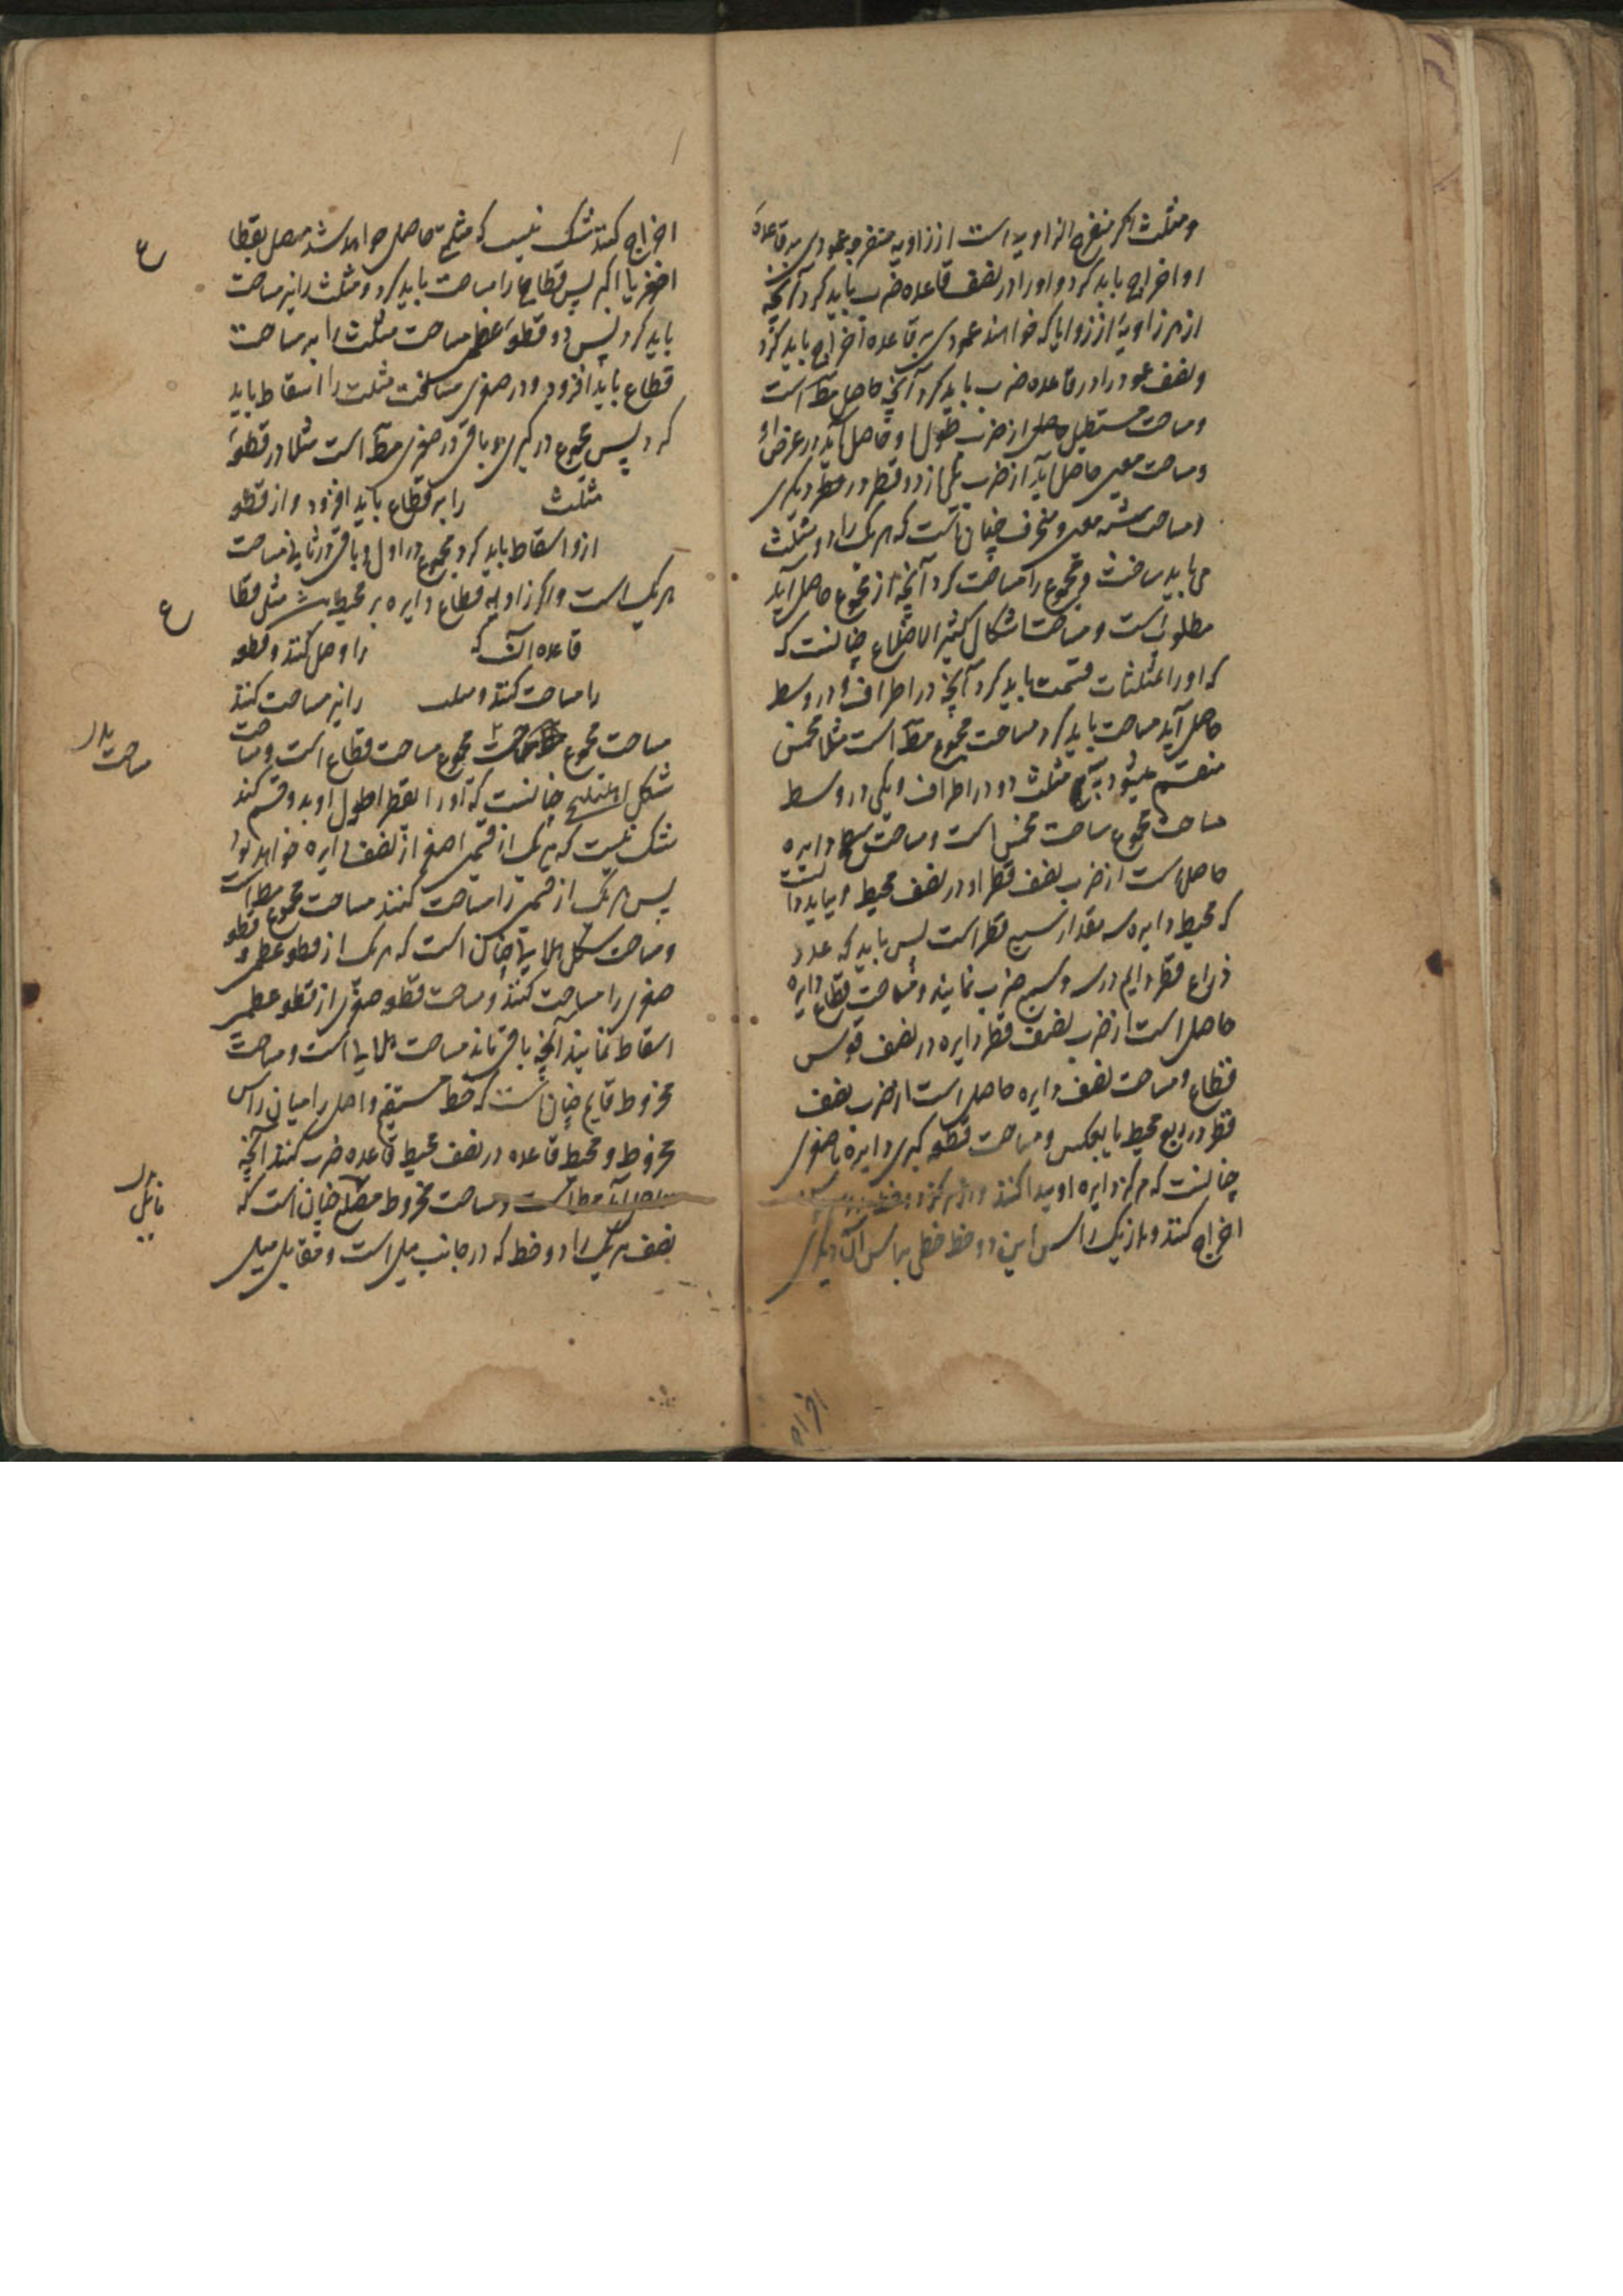 ومثلث اگر منفرج الزاویه است از زاویه منفرجه عمودی بر قاعدهٔ
او اخراج باید کرد و او را در نصف قاعده ضرب باید کرد و آنچه
از هر زاویهٔ از زوایا که خواهند عمودی بر قاعده اخراج باید کرد
و نصف عمود را در قاعده ضرب باید کرد آنچه حاصل مط است
و مساحت مستطیل حاصل از ضرب طول او حاصل آید در عرض او
و مساحت معین حاصل آید از ضرب یکی از دو قطر در دیگری
و مساحت شبه معین و منحرف چنان است که هر یک را دو مثلث
می باید ساخت و مجموع را مساحت کرد آنچه از مجموع حاصل آید
مطلوب است و مساحت اشکال کثیر الاضلاع چنانست که
که او را بمثلثات قسمت باید کرد آنچه در اطراف و در وسط
حاصل آید مساحت باید کرد مساحت مجموع مط است مثلا مخمس
منقسم میشود به مثلث دو در اطراف و یکی در وسط
مساحت مجموع مساحت مخمس است و مساحت دایره
حاصل است از ضرب نصف قطر او در نصف محیط و بباید دانست
که محیط دایره سه مقدار سبع قطر است پس باید که عدد
ذراع قطر دایم در سه و سبع ضرب نمایند و مساحت قطاع دایره
حاصل است از ضرب نصف قطر دایره در نصف قوس
قطاع و مساحت نصف دایره حاصل است از ضرب نصف
قطر در ربع محیط یا بعکس و مساحت قطعه کبری دایره یا صغری
چنانست که مرکز دایره او پیدا کنند و از مرکز دو خط
اخراج کنند و از یک راس این دو خط خطی براس آن دیگری
اخراج
اخراج کنند شک نیست که مثلثی حاصل خواهد شد متصل بقطاع
اصغر یا اکبر پس قطاع را مساحت باید کرد و مثلث را نیز مساحت
باید کرد پس در قطعهٔ عظمی مساحت مثلث را بر مساحت
قطاع باید افزود و در صغری مساحت مثلث را اسقاط باید
کرد پس مجموع در کبری و باقی در صغری مط است مثلا در قطعهٔ
مثلث را بر قطاع باید افزود و از قطعه
ازو اسقاط باید کرد مجموع در اول و باقی در ثانی مساحت
هر یک است و اگر زاویه قطاع دایره بر محیط باشد مثل قطاع
قاعده آنست که را وصل کنند و قطعه
را مساحت کنند و مثلث را نیز مساحت کنند
مساحت مجموع مجموع مساحت قطاع است و مساحت
شکل اهلیلجی چنانست که او را بقطر اطول او بدو قسم کنند
شک نیست که هر یک از قسمین اصغر از نصف دایره خواهد بود
پس هر یک از قسمین را مساحت کنند مساحت مجموع مط است
و مساحت شکل هلالی چنان است که هر یک از قطعه عظمی و قطعه
صغری را مساحت کنند و مساحت قطعه صغری از قطعه عظمی
اسقاط نمایند آنچه باقی ماند مساحت هلالی است و مساحت
مخروط قایم چنان است که خط مستقیم واصل را میان راس
مخروط و محیط قاعده در نصف محیط قاعده ضرب کنند آنچه
حاصل آید مط است و مساحت مخروط مضلع چنان است که
نصف هر یک را دو خط که در جانب میل است و مقابل میل
ع
ع
مساحت
مایل